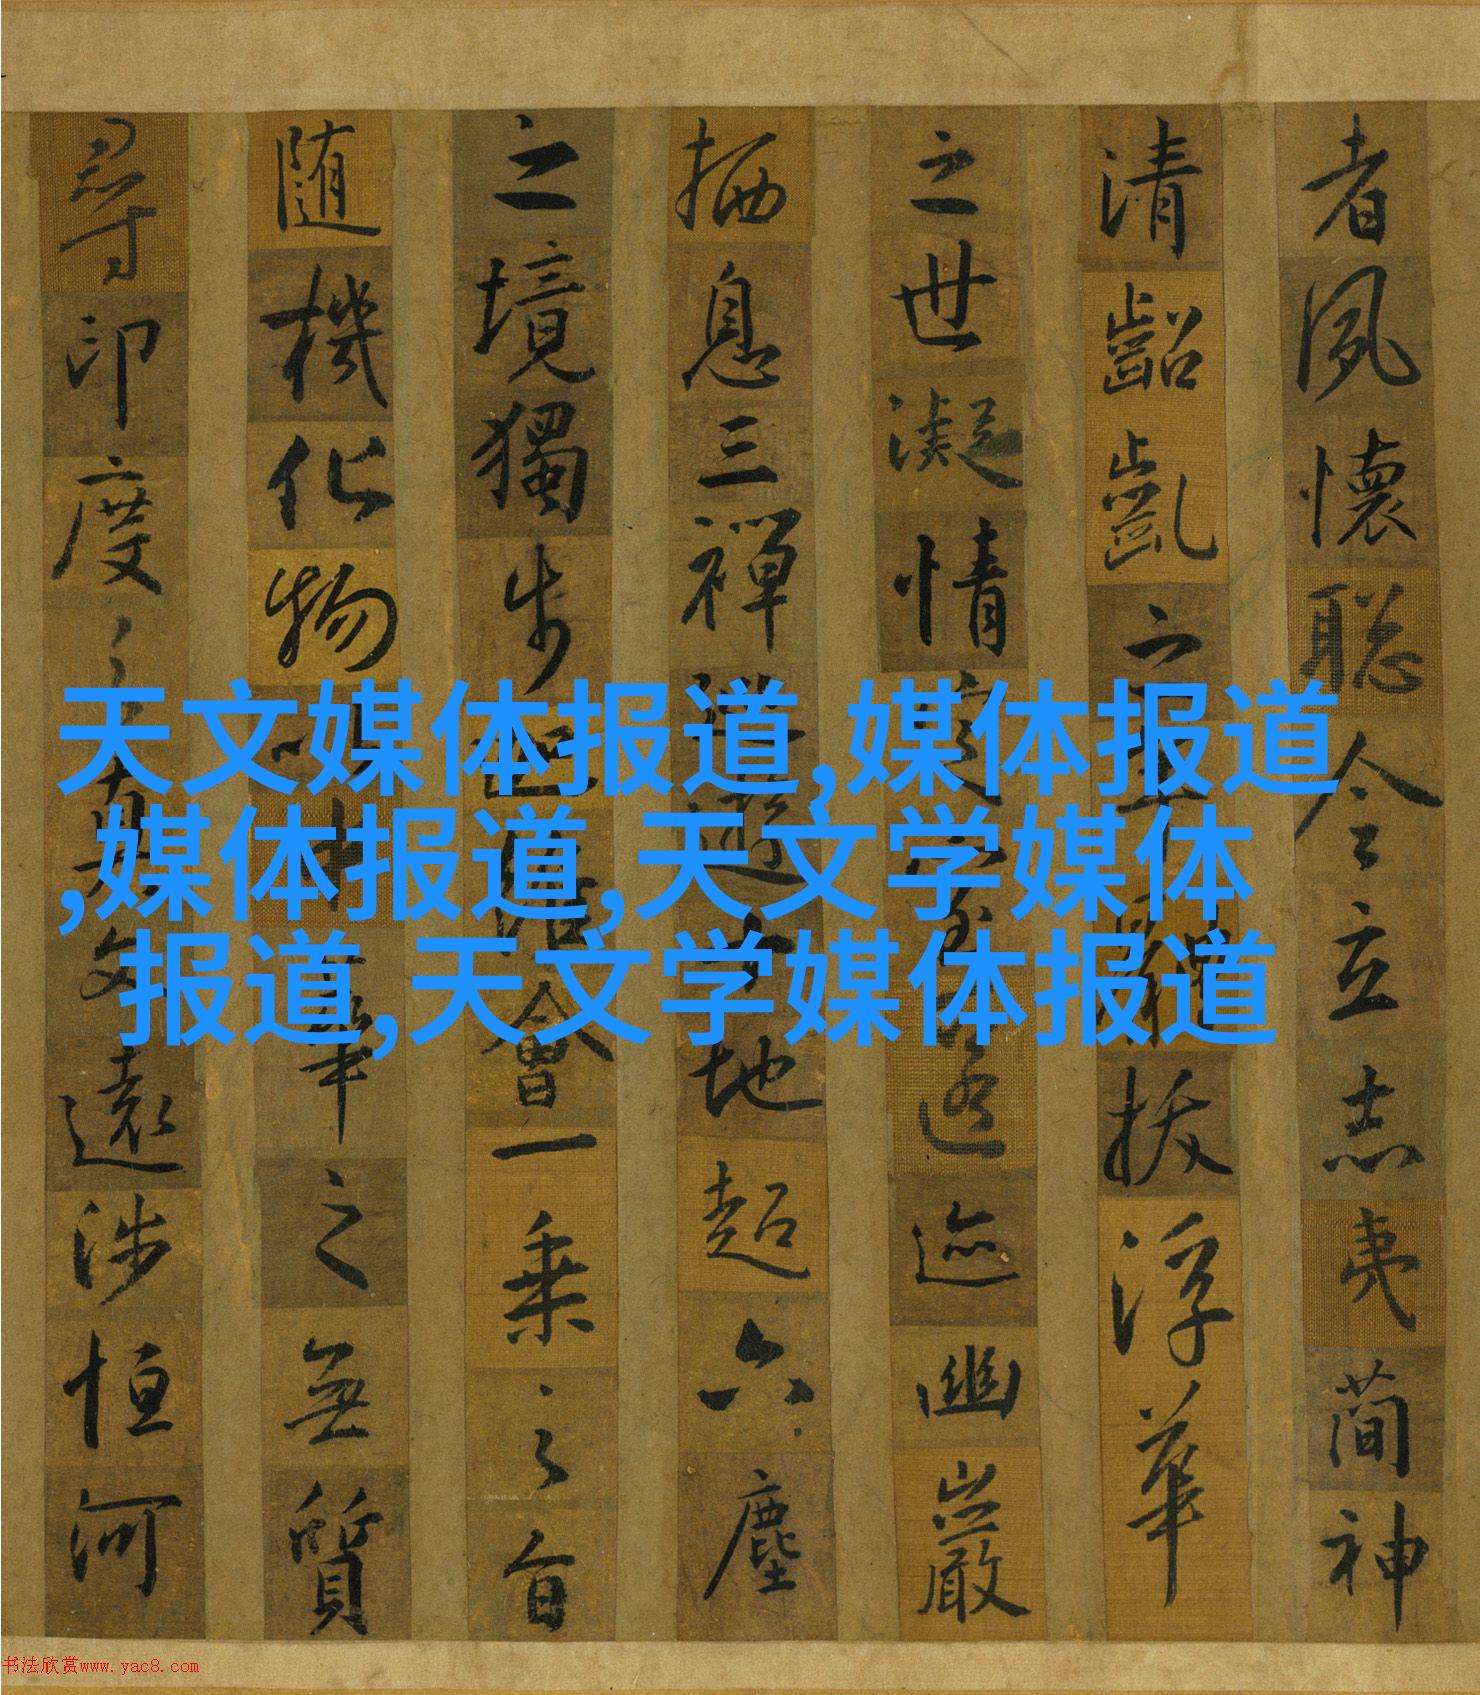 者夙懷聪令立志夷簡神
清齠齔之拔浮華
之世凝情迹幽巖
栖息三禪遊地超六塵
之境獨步迦會一乘之旨
随機化物中華之無質
尋印度之真文遠涉恒河
天文媒体报道,媒体报道
,媒体报道,天文学媒体
报道,天文学媒体报道
书法欣赏www.yac8.com